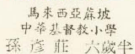 馬來西亞蔴坡
中華基督教小學
孫彥莊 六歲半